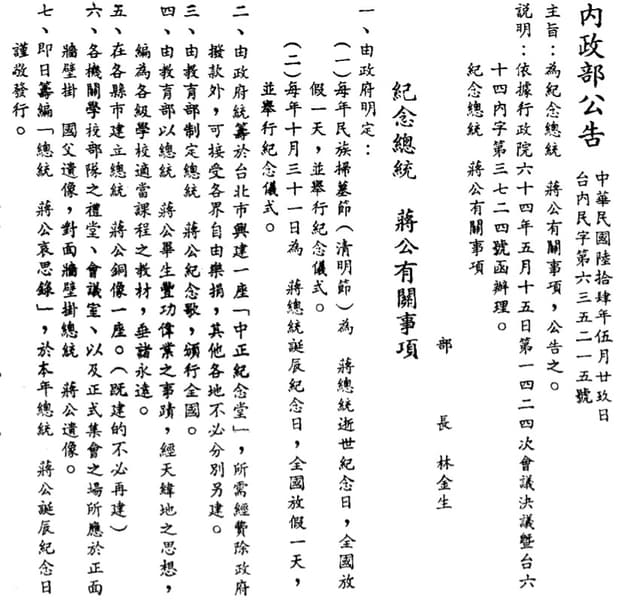 內政部公告
中華民國陸拾肆年伍月廿玖日
台內民字第六三五二一五號
主旨：為紀念總統　蔣公有關事項，公告之。
說明：依據行政院六十四年五月十五日第一四二四次會議決議暨台六
十四內字第三七二四號函辦理。
紀念總統　蔣公有關事項
部　長　林金生
紀念總統　蔣公有關事項
一、由政府明定：
（一）每年民族掃墓節（清明節）為　蔣總統逝世紀念日，全國放
假一天，並舉行紀念儀式。
（二）每年十月三十一日為　蔣總統誕辰紀念日，全國放假一天，
並舉行紀念儀式。
二、由政府統籌於台北市興建一座「中正紀念堂」，所需經費除政府
撥款外，可接受各界自由樂捐，其他各地不必分別另建。
三、由教育部制定總統　蔣公紀念歌，頒行全國。
四、由教育部以總統　蔣公畢生豐功偉業之事蹟，經天緯地之思想，
編為各級學校適當課程之教材，垂諸永遠。
五、在各縣市建立總統　蔣公銅像一座。（既建的不必再建）
六、各機關學校部隊之禮堂、會議室、以及正式集會之場所應於正面
牆壁掛　國父遺像，對面牆壁掛總統　蔣公遺像。
七、即日籌編「總統　蔣公哀思錄」，於本年總統　蔣公誕辰紀念日
謹敬發行。